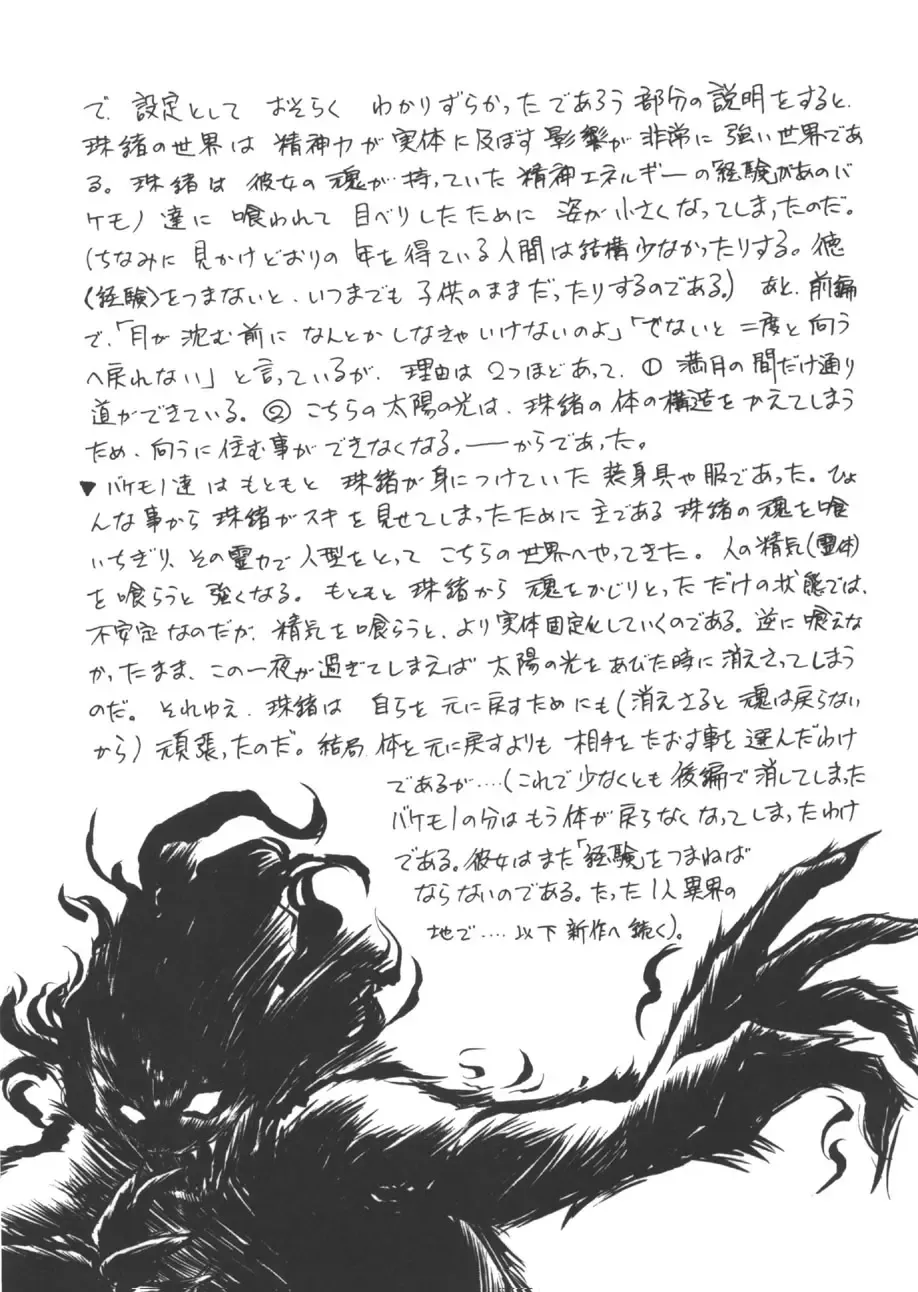 で、設定として おそらく わかりずらかったであろう 部分の説明をすると、
珠緒の世界は 精神力が実体に及ぼす影響が 非常に強い世界であ
る。珠緒は 彼女の魂が持っていた 精神エネルギーの「経験」があのバ
ケモノ達に 喰われて 目べりしたために 姿が小さくなってしまったのだ。
(ちなみに 見かけどおりの 年を得ている人間は結構少なかったりする。徳
〈経験〉をつまないと、いつまでも 子供のままだったりするのである。) あと、前編
で、「月が沈む前に なんとかしなきゃいけないのよ」「でないと 二度と向う
へ戻れない」と言っているが、理由は 2つほどあって、① 満月の間だけ通り
道ができている。② こちらの太陽の光は、珠緒の体の構造をかえてしまう
ため、向うに住む事ができなくなる。――からであった。
▼バケモノ達はもともと 珠緒が身につけていた 装身具や服であった。ひょ
んな事から 珠緒がスキを見せてしまったために 主である 珠緒の魂を喰
いちぎり、その霊力で人型をとって こちらの世界へやってきた。人の精気(霊体)
を喰らうと強くなる。もともと 珠緒から 魂をかじりとっただけの状態では、
不安定なのだが、精気を喰らうと、より実体固定化していくのである。逆に喰えな
かったまま、この一夜が過ぎてしまえば 太陽の光をあびた時に消えさってしまう
のだ。それゆえ、珠緒は 自らを 元に戻すためにも(消えさると 魂は戻らない
から) 頑張ったのだ。結局、体を元に戻すよりも 相手をたおす事を選んだわけ
であるが‥‥(これで少なくとも 後編で消してしまった
バケモノの分はもう体が戻らなくなってしまったわけ
である。彼女はまだ「経験」をつまねば
ならないのである。たった1人異界の
地で‥‥以下 新作へ続く)。